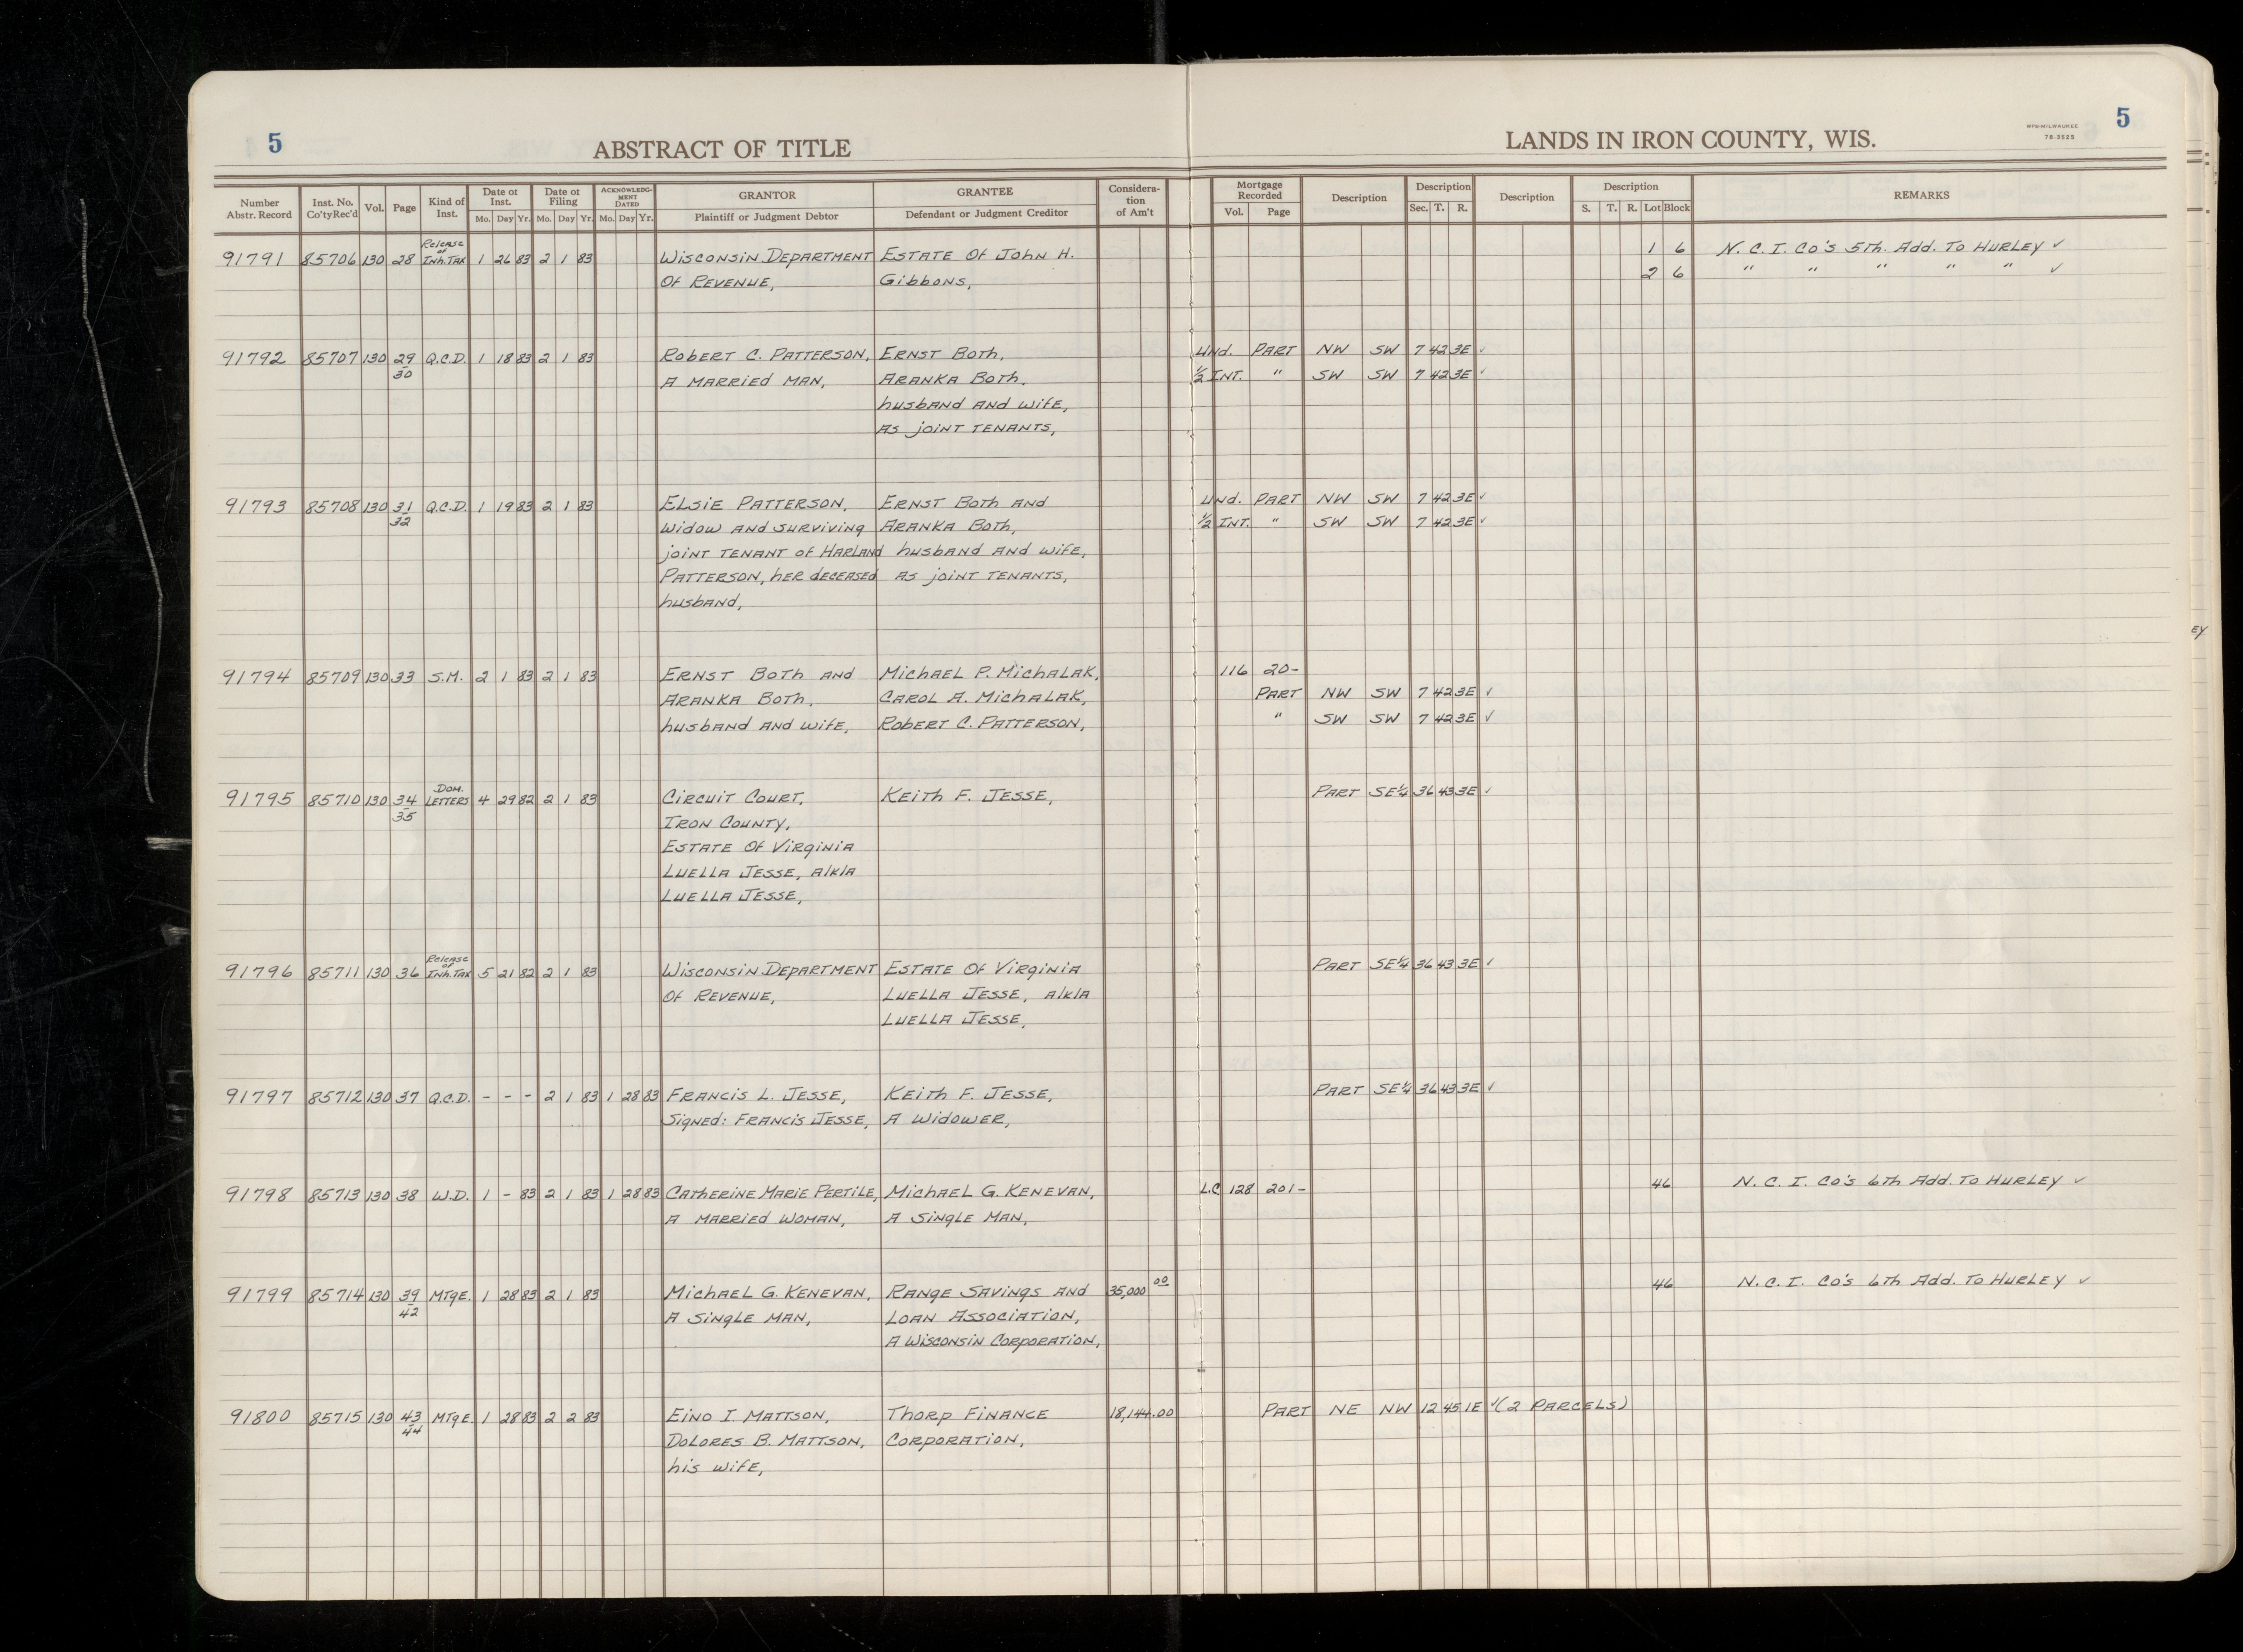 5
ABSTRACT OF TITLE
LANDS IN IRON COUNTY, WIS.
WPB-MILWAUKEE
78-3525
5
Number Abstr. Record | Inst. No. Co'ty Rec'd | Vol. | Page | Kind of Inst. | Date of Inst. Mo. Day Yr. | Date of Filing Mo. Day Yr. | ACKNOWLEDGMENT DATED Mo. Day Yr. | GRANTOR Plaintiff or Judgment Debtor | GRANTEE Defendant or Judgment Creditor | Consideration of Am't | Mortgage Recorded Vol. Page | Description | Description Sec. T. R. | Description | Description S. T. R. Lot Block | REMARKS
Release
of
91791 85706 130 28 Inh. Tax 1 26 83 2 1 83 Wisconsin Department Estate Of John H. 1 6 N. C. I. Co's 5th. Add. To Hurley ✓
Of Revenue, Gibbons, 2 6 " " " " " ✓
91792 85707 130 29 Q.C.D. 1 18 83 2 1 83 Robert C. Patterson, Ernst Both, Und. Part NW SW 7 42 3E ✓
30 A Married Man, Aranka Both, 1/2 Int. " SW SW 7 42 3E ✓
husband and wife,
as joint tenants,
91793 85708 130 31 Q.C.D. 1 19 83 2 1 83 Elsie Patterson, Ernst Both and Und. Part NW SW 7 42 3E ✓
32 Widow and surviving Aranka Both, 1/2 Int. " SW SW 7 42 3E ✓
joint tenant of Harland husband and wife,
Patterson, her deceased as joint tenants,
husband,
91794 85709 130 33 S.M. 2 1 83 2 1 83 Ernst Both and Michael P. Michalak, 116 20-
Aranka Both, Carol A. Michalak, Part NW SW 7 42 3E ✓
husband and wife, Robert C. Patterson, " SW SW 7 42 3E ✓
Dom.
91795 85710 130 34 Letters 4 29 82 2 1 83 Circuit Court, Keith F. Jesse, Part SE¼ 36 43 3E ✓
35 Iron County,
Estate Of Virginia
Luella Jesse, a/k/a
Luella Jesse,
Release
of
91796 85711 130 36 Inh. Tax 5 21 82 2 1 83 Wisconsin Department Estate Of Virginia Part SE¼ 36 43 3E ✓
Of Revenue, Luella Jesse, a/k/a
Luella Jesse,
91797 85712 130 37 Q.C.D. - - - 2 1 83 1 28 83 Francis L. Jesse, Keith F. Jesse, Part SE¼ 36 43 3E ✓
Signed: Francis Jesse, A Widower,
91798 85713 130 38 W.D. 1 - 83 2 1 83 1 28 83 Catherine Marie Pertile, Michael G. Kenevan, L.C. 128 201- 46 N. C. I. Co's 6th Add. To Hurley ✓
A Married Woman, A Single Man,
91799 85714 130 39 Mtge. 1 28 83 2 1 83 Michael G. Kenevan, Range Savings and 35,000 00 46 N. C. I. Co's 6th Add. To Hurley ✓
42 A Single Man, Loan Association,
A Wisconsin Corporation,
91800 85715 130 43 Mtge. 1 28 83 2 2 83 Eino I. Mattson, Thorp Finance 18,144.00 Part NE NW 12 45 1E ✓ (2 Parcels)
44 Dolores B. Mattson, Corporation,
his wife,
EY